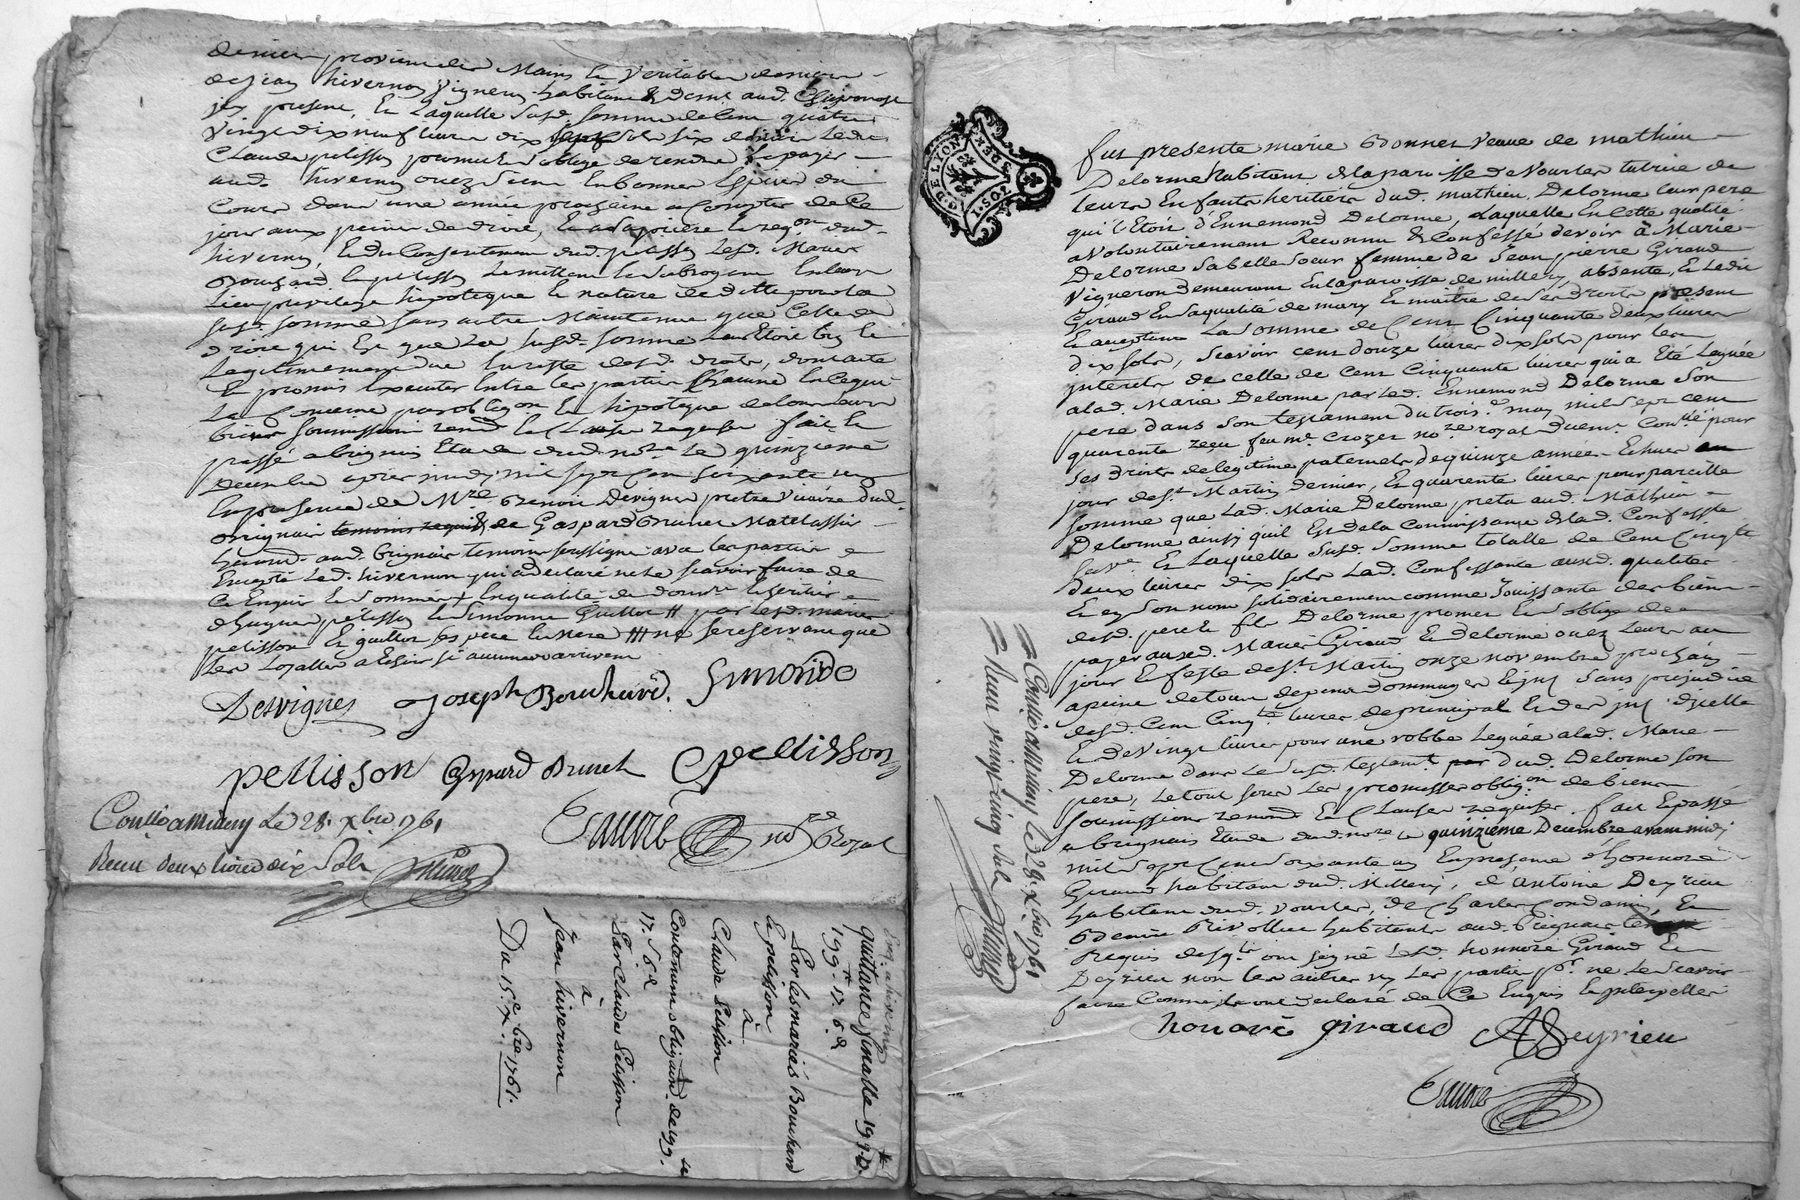 denier provenu des Mains le veritable denier
de Jean hivernon Vigneron habitant & demt. aud. Chaponost
jcy present, Et Laquelle susd. somme de Cent quatre
Vingt dix neuf livres dix sept sols six deniers Led.
Claude pelisson promet & s'oblige de rendre & payer
aud. hivernon En bonnes Espèces du
Cours dans une année prochaine a Compter de Ce
jour aux peines de droit,
hivernon, Et du Consentement dud. pelisson Lesd. Mariés
Bouchard & pelisson Le mettent & subrogent En leur
Lieu privilege hipoteque & nature de dette pour la
susd. somme sans autre Maintenue que Celle de
droit qui Est que La susd. somme Leur Etoit bien &
Legitimement due En reste desd. droits, dont acte
Et promis Executer Entre les parties Chacune En Ce qui
La Concerne par obligon. & hipoteque de leurs
biens soumissions renond. & Clauses requises fait &
passé a brignais Etude dud. nore. Le quinzieme
decembre après midy mil sept Cent soixante un
En presence de Mre. Benoit Devignes pretre Vicaire dud.
brignais temoins requis & de Gaspard Brunet Matelassier
aud. brignais temoins soussignés avec les parties
Excepté Led. hivernon qui a declaré ne le scavoir faire de
Ce Enquis & sommé
d'hugues pelisson & Simonne Guillot par lesd. mariés
pelisson Et guillot ses pere & mere ne se reservant que
Les Loyaux a Echoir si aucuns arrivent
Desvignes Joseph Bouchard. Simonde
pellisson Gaspard Brunet C pellisson
Sauvé nore Royal
Conllé a Millery Le 28. xbre 1761
Recu deux livres dix sols
Quittance finalle 199.
199 tt 17. s 6 d
Par les mariés Bouchard
& pelisson
à
Claude Pelisson
Contenant obligaon. de 199. tt
17. s 6 d
Par Claude Pelisson
à
Jean hivernon
Du 15. Xbre 1761.
G. D. DE LYON
I. SOL 8 DEN
fut presente marie Bonnet Veuve de mathieu
Delorme habitant de la paroisse de Vourles tutrice de
leurs Enfants heritiers dud. mathieu Delorme leur pere
qui l'Etoit d'Ennemond Delorme, Laquelle En Cette qualité
a Volontairement Reconnu & Confessé devoir à Marie
Delorme sa belle soeur femme de Jean pierre Giraud
Vigneron demeurant En la paroisse de millery, absente, & Ledit
Giraud En sa qualité de mary & maitre de ses droits présent
& acceptant La somme de Cent Cinquante deux livres
dix sols, scavoir cent douze livres dix sols pour les
jnterets de celle de Cent Cinquante livres qui a Eté Leguée
a lad. Marie Delorme par led. Ennemond Delorme son
pere dans son testament du trois.e may mil sept cent
quarente reçu feu me. Crozet nore. royal duemt. Conlé pour
ses droits de legitime paternels de quinze années Echues au
jour de st. Martin dernier, Et quarente livres pour pareille
somme que Lad. Marie Delorme preta aud. Mathieu
Delorme ainsy qu'il Est de la Connoissance de lad. Confess.te
Et Laquelle susd. somme totalle de Cent Cinqte.
deux livres dix sols Lad. Confessante ausd. qualités
Et en son nom solidairement comme Jouissante des biens
desd. pere & fils Delorme promet & s'oblige de
payer ausd. Mariés Giraud & delorme ou ez Leurs au
jour & feste de st. Martin onze novembre prochain
a peine de tous depens dommages & jnt. sans prejudice
desd. Cent Cinqte. livres de principal & des jnt. d'jcelle
Et de Vingt livres pour une robbe Leguée a lad. Marie
Delorme dans Le susd. testamt. par dud. Delorme son
pere, Le tout sous Les promesses oblig.on de biens
soumissions renond. Et Clauses requises. fait & passé
a brignais Etude dud. nore. Le quinzieme Decembre avant midy
mil sept Cent soixante un En presence d'honnoré
Giraud habitant dud. Millery, d'antoine Deyrieu
habitant dud. Vourles, de Charles Condamin, Et
Benoit Rivollier habitants aud. Brignais temoins
Requis desqls. ont signé Lesd. honnoré Giraud &
Deyrieu non les autres ny Les parties pr. ne Le scavoir
faire Comme ils ont declaré de Ce Enquis & jnterpellés
honoré giraud A Deyrieu
Sauvé
Conllé a Millery le 28. xbre 1761
Recu vingt cinq sols